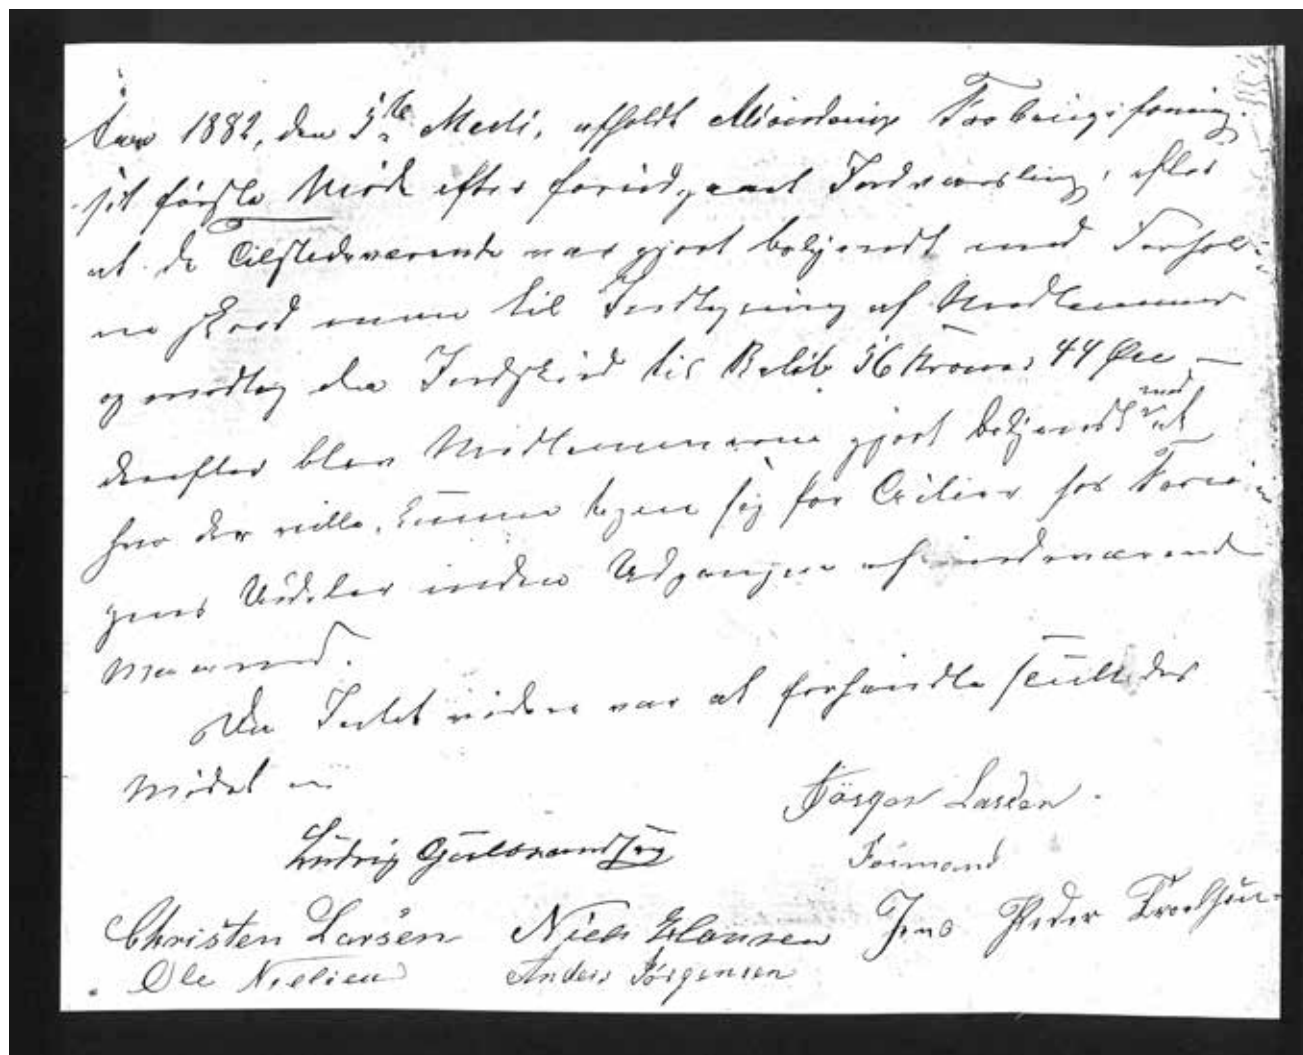 Aar 1882, den 5te Marts, afholdt Forbrugsforening
sit første Møde efter foregaaet Indvarsling, efter
at de Tilstedeværende var gjort bekjendt med Forhol-
til Indtegning af Medlemmer
og modtog Indskud til Beløb 56 Kroner 44 Øre —
derefter blev Medlemmerne gjort bekjendt med at
hvo der ville, kunne tegne sig for Actier hos Foreni
gens Uddeler inden Udgangen af indeværende
Maaned.
Da Intet videre var at forhandle sluttedes
Mødet
Jörgen Larsen.
Ludvig Guldbrandsen
Formand
Christen Larsen Niels Hansen Jens Peder Troelsen
Ole Nielsen Anders Jørgensen